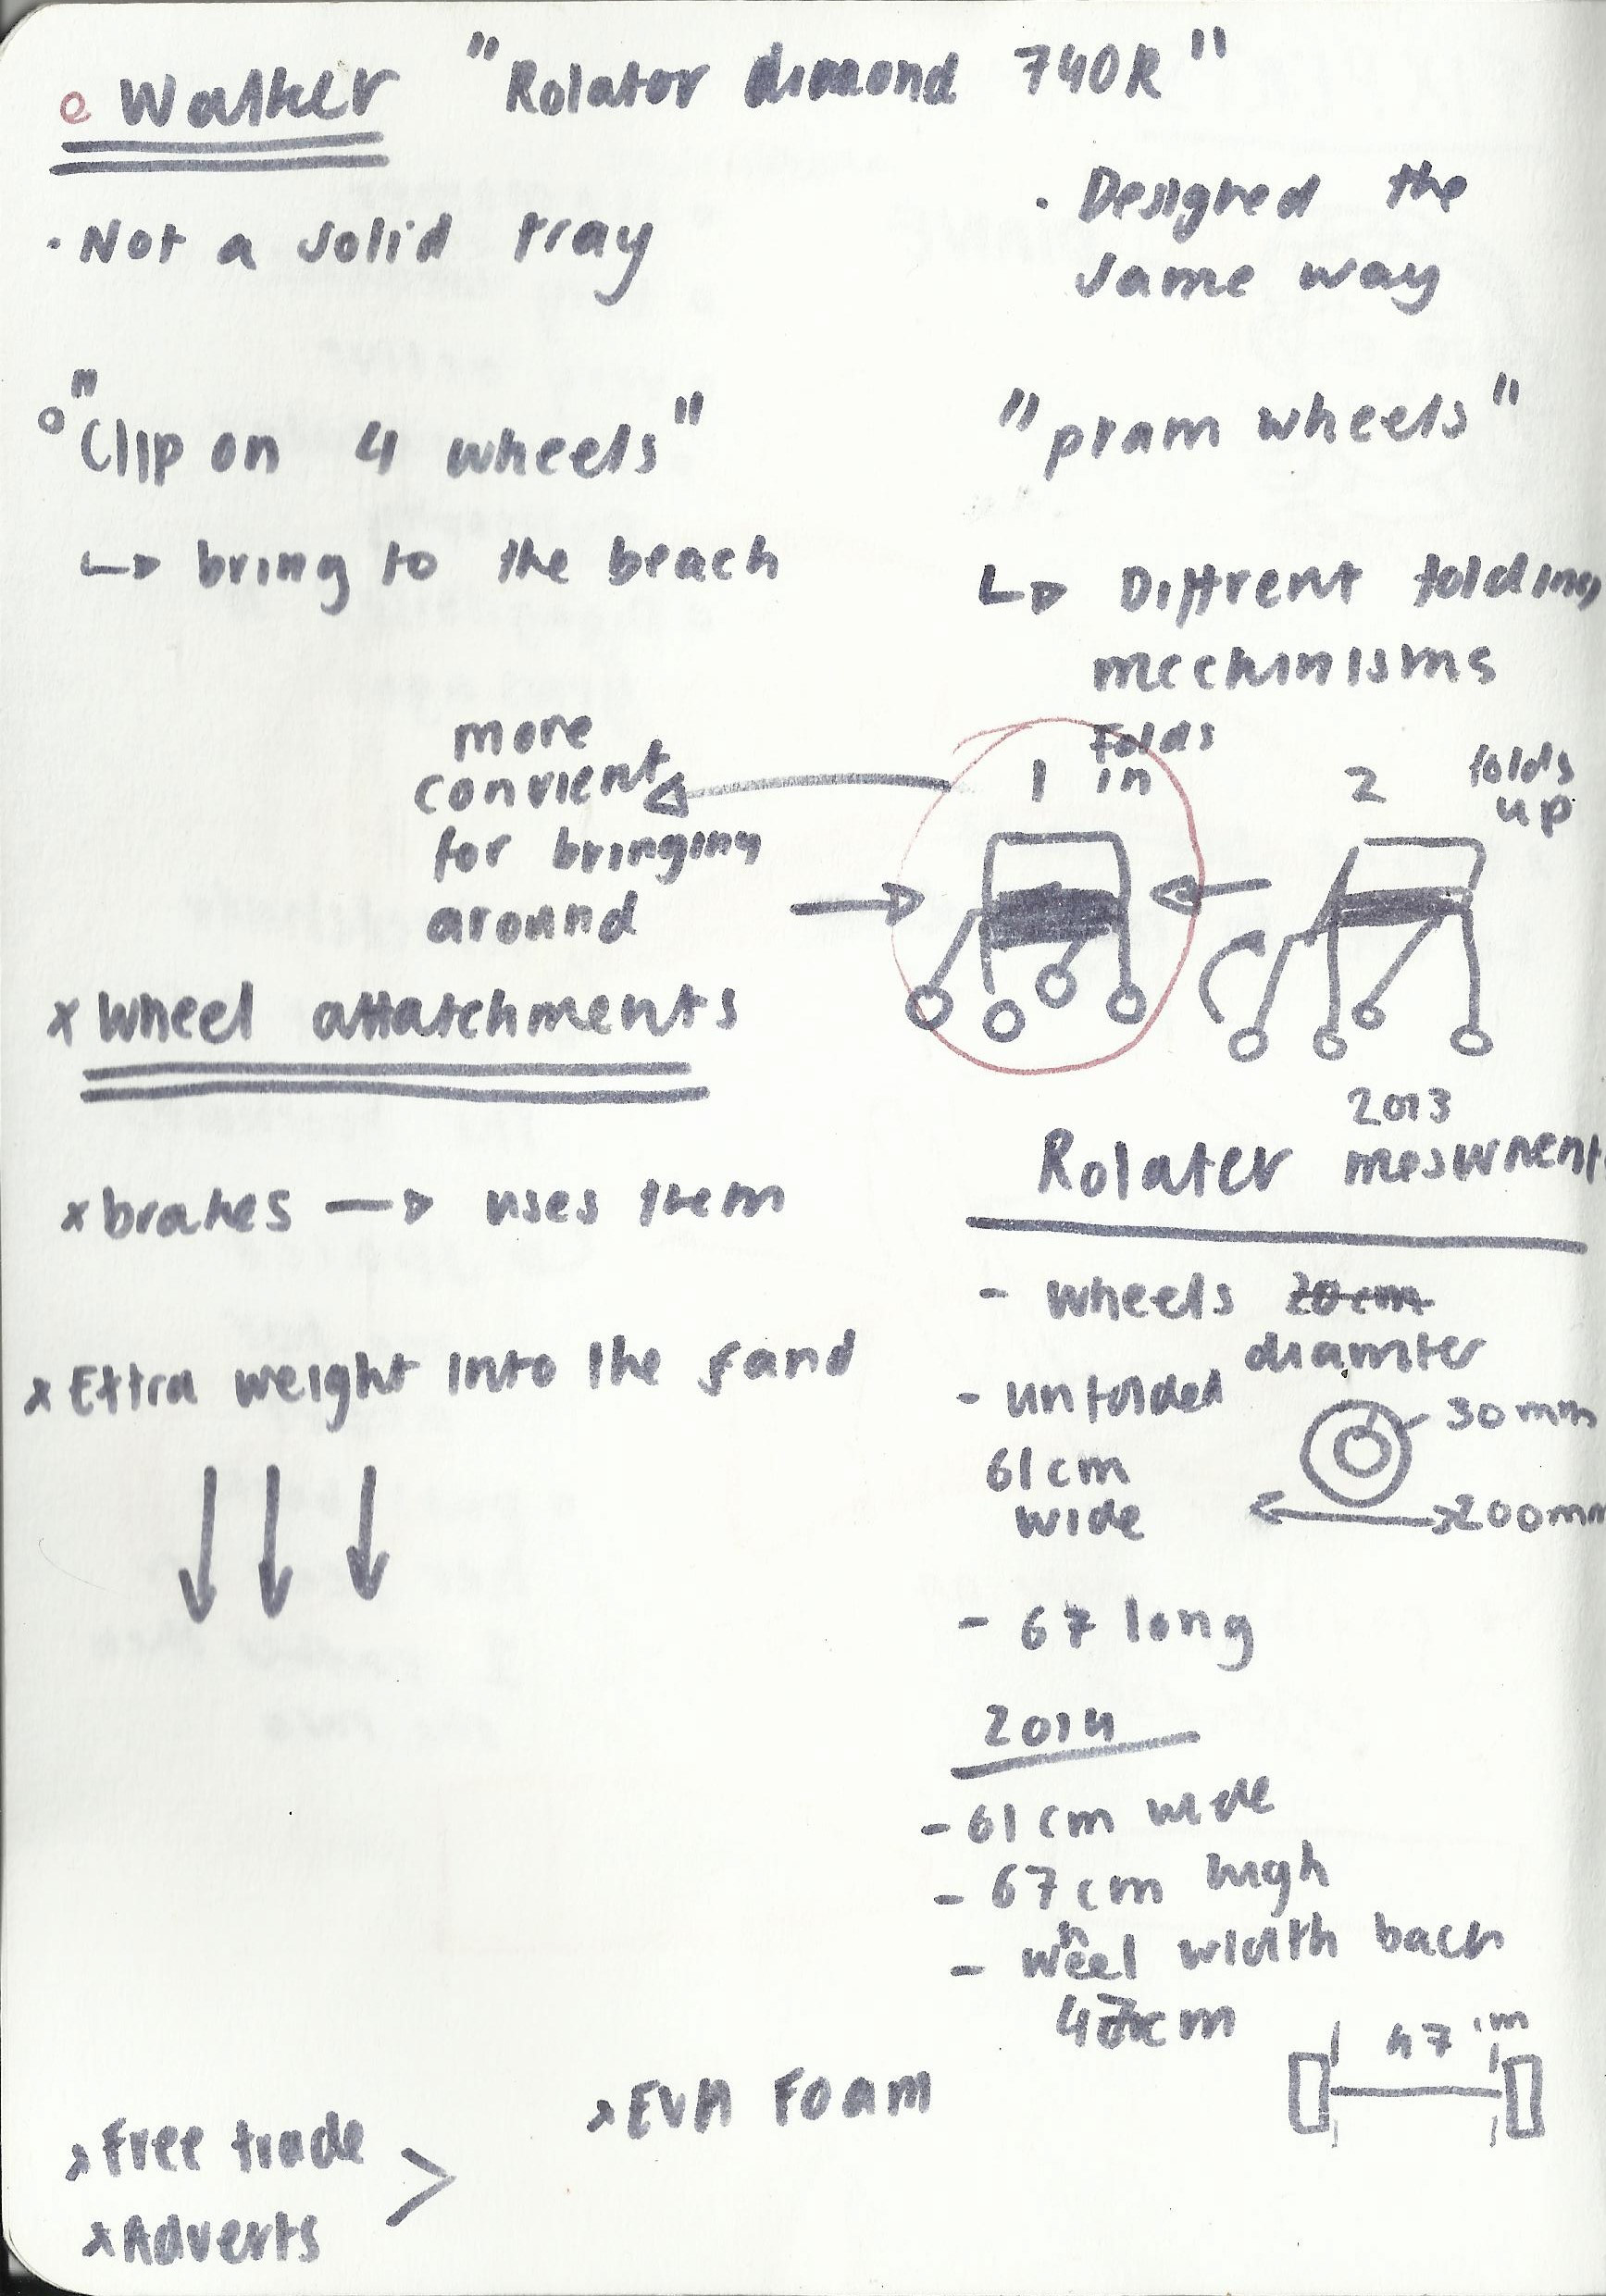 Walker "Rolator dimond 740R"
· Not a solid tray
· Designed the
same way
"Clip on 4 wheels"
"pram wheels"
↳ bring to the beach
↳ Diffrent folding
mechinisms
more
convient
for bringing
around
1 Folds
in
2 folds
up
x Wheel attatchments
x brakes → uses them
x Extra weight into the sand
2013
Rolater mesurnent
- wheels 20cm
diamter
- unfolded
61cm
wide
30mm
200mm
- 67 long
2014
- 61cm wide
- 67cm high
- wheel width back
47cm
47cm
x EVA Foam
x Free trade
x Adverts